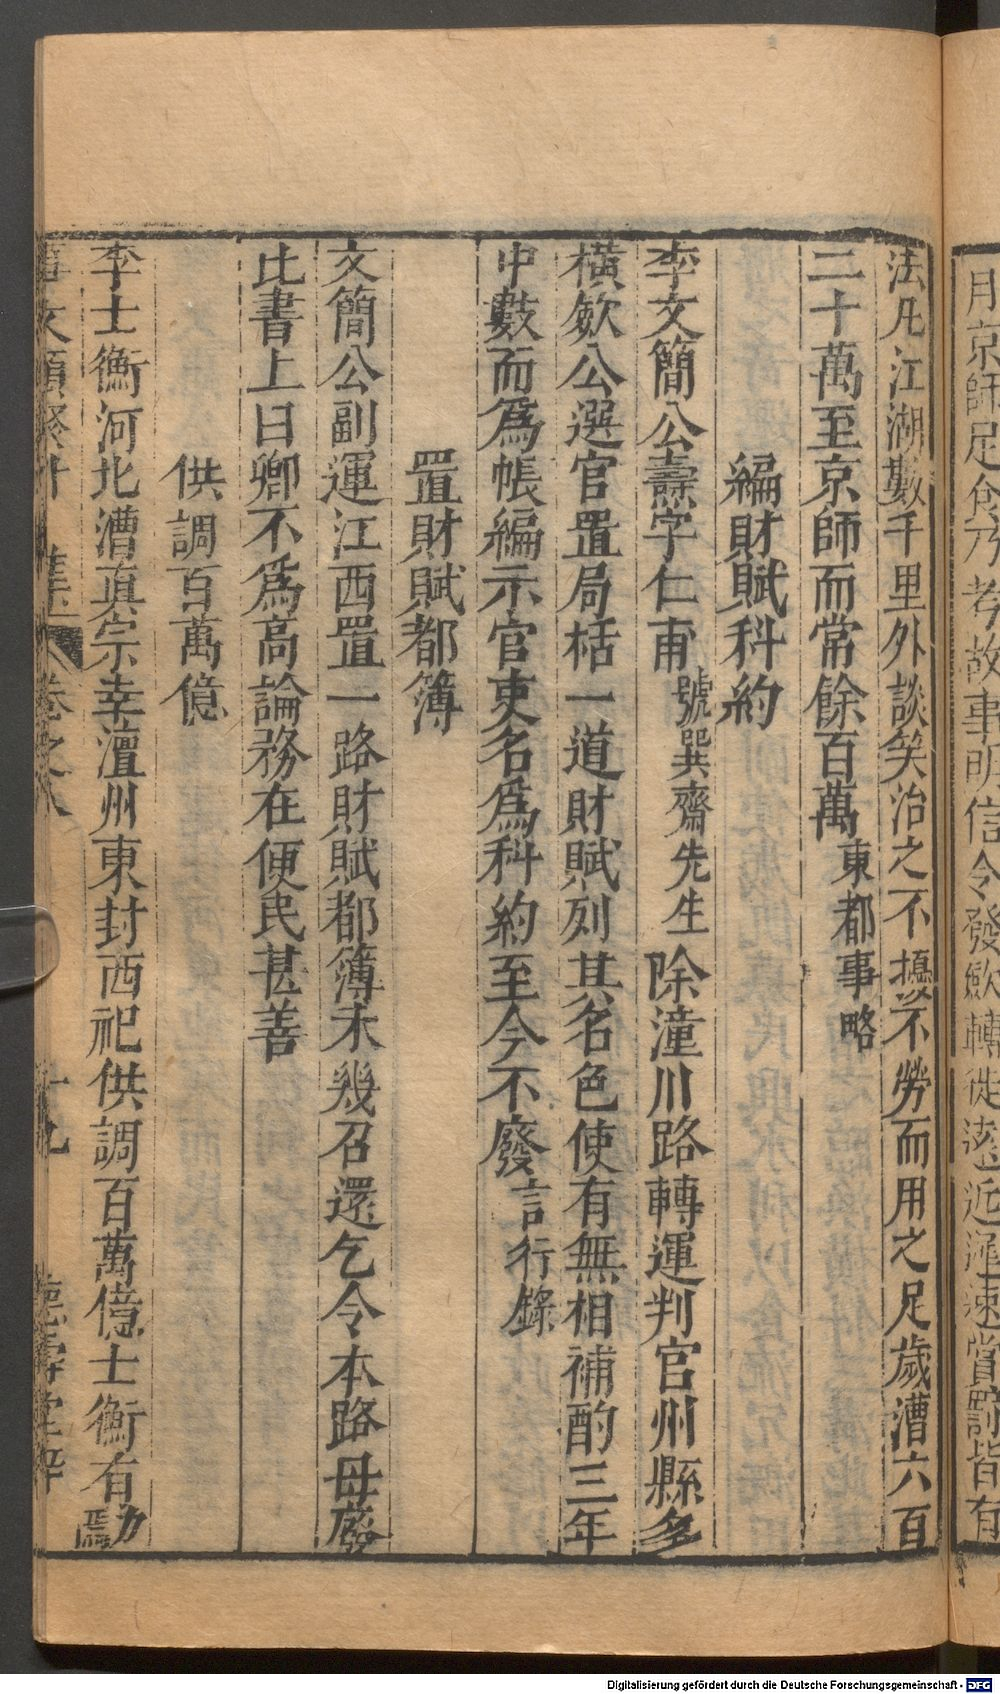 月京師足食乃考故事明信令發斂轉徙遠近遲速賞罰皆有
法凡江湖數千里外談笑治之不擾不勞而用之足歲漕六百
二十萬至京師而常餘百萬東都事略
編財賦科約
李文簡公燾字仁甫號巽齋先生除潼川路轉運判官州縣多
橫歛公選官置局栝一道財賦列其名色使有無相補酌三年
中數而爲帳編示官吏名爲科約至今不廢言行錄
置財賦都簿
文簡公副運江西置一路財賦都簿未幾召還乞令本路毋廢
比書上曰卿不爲高論務在便民甚善
供調百萬億
李士衡河北漕真宗幸澶州東封西祀供調百萬億士衡有力焉
卷之八 十九
Digitalisierung gefördert durch die Deutsche Forschungsgemeinschaft - DFG